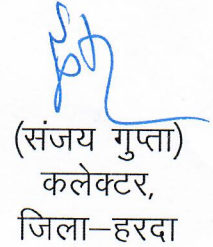 (संजय गुप्ता)
कलेक्टर,
जिला–हरदा